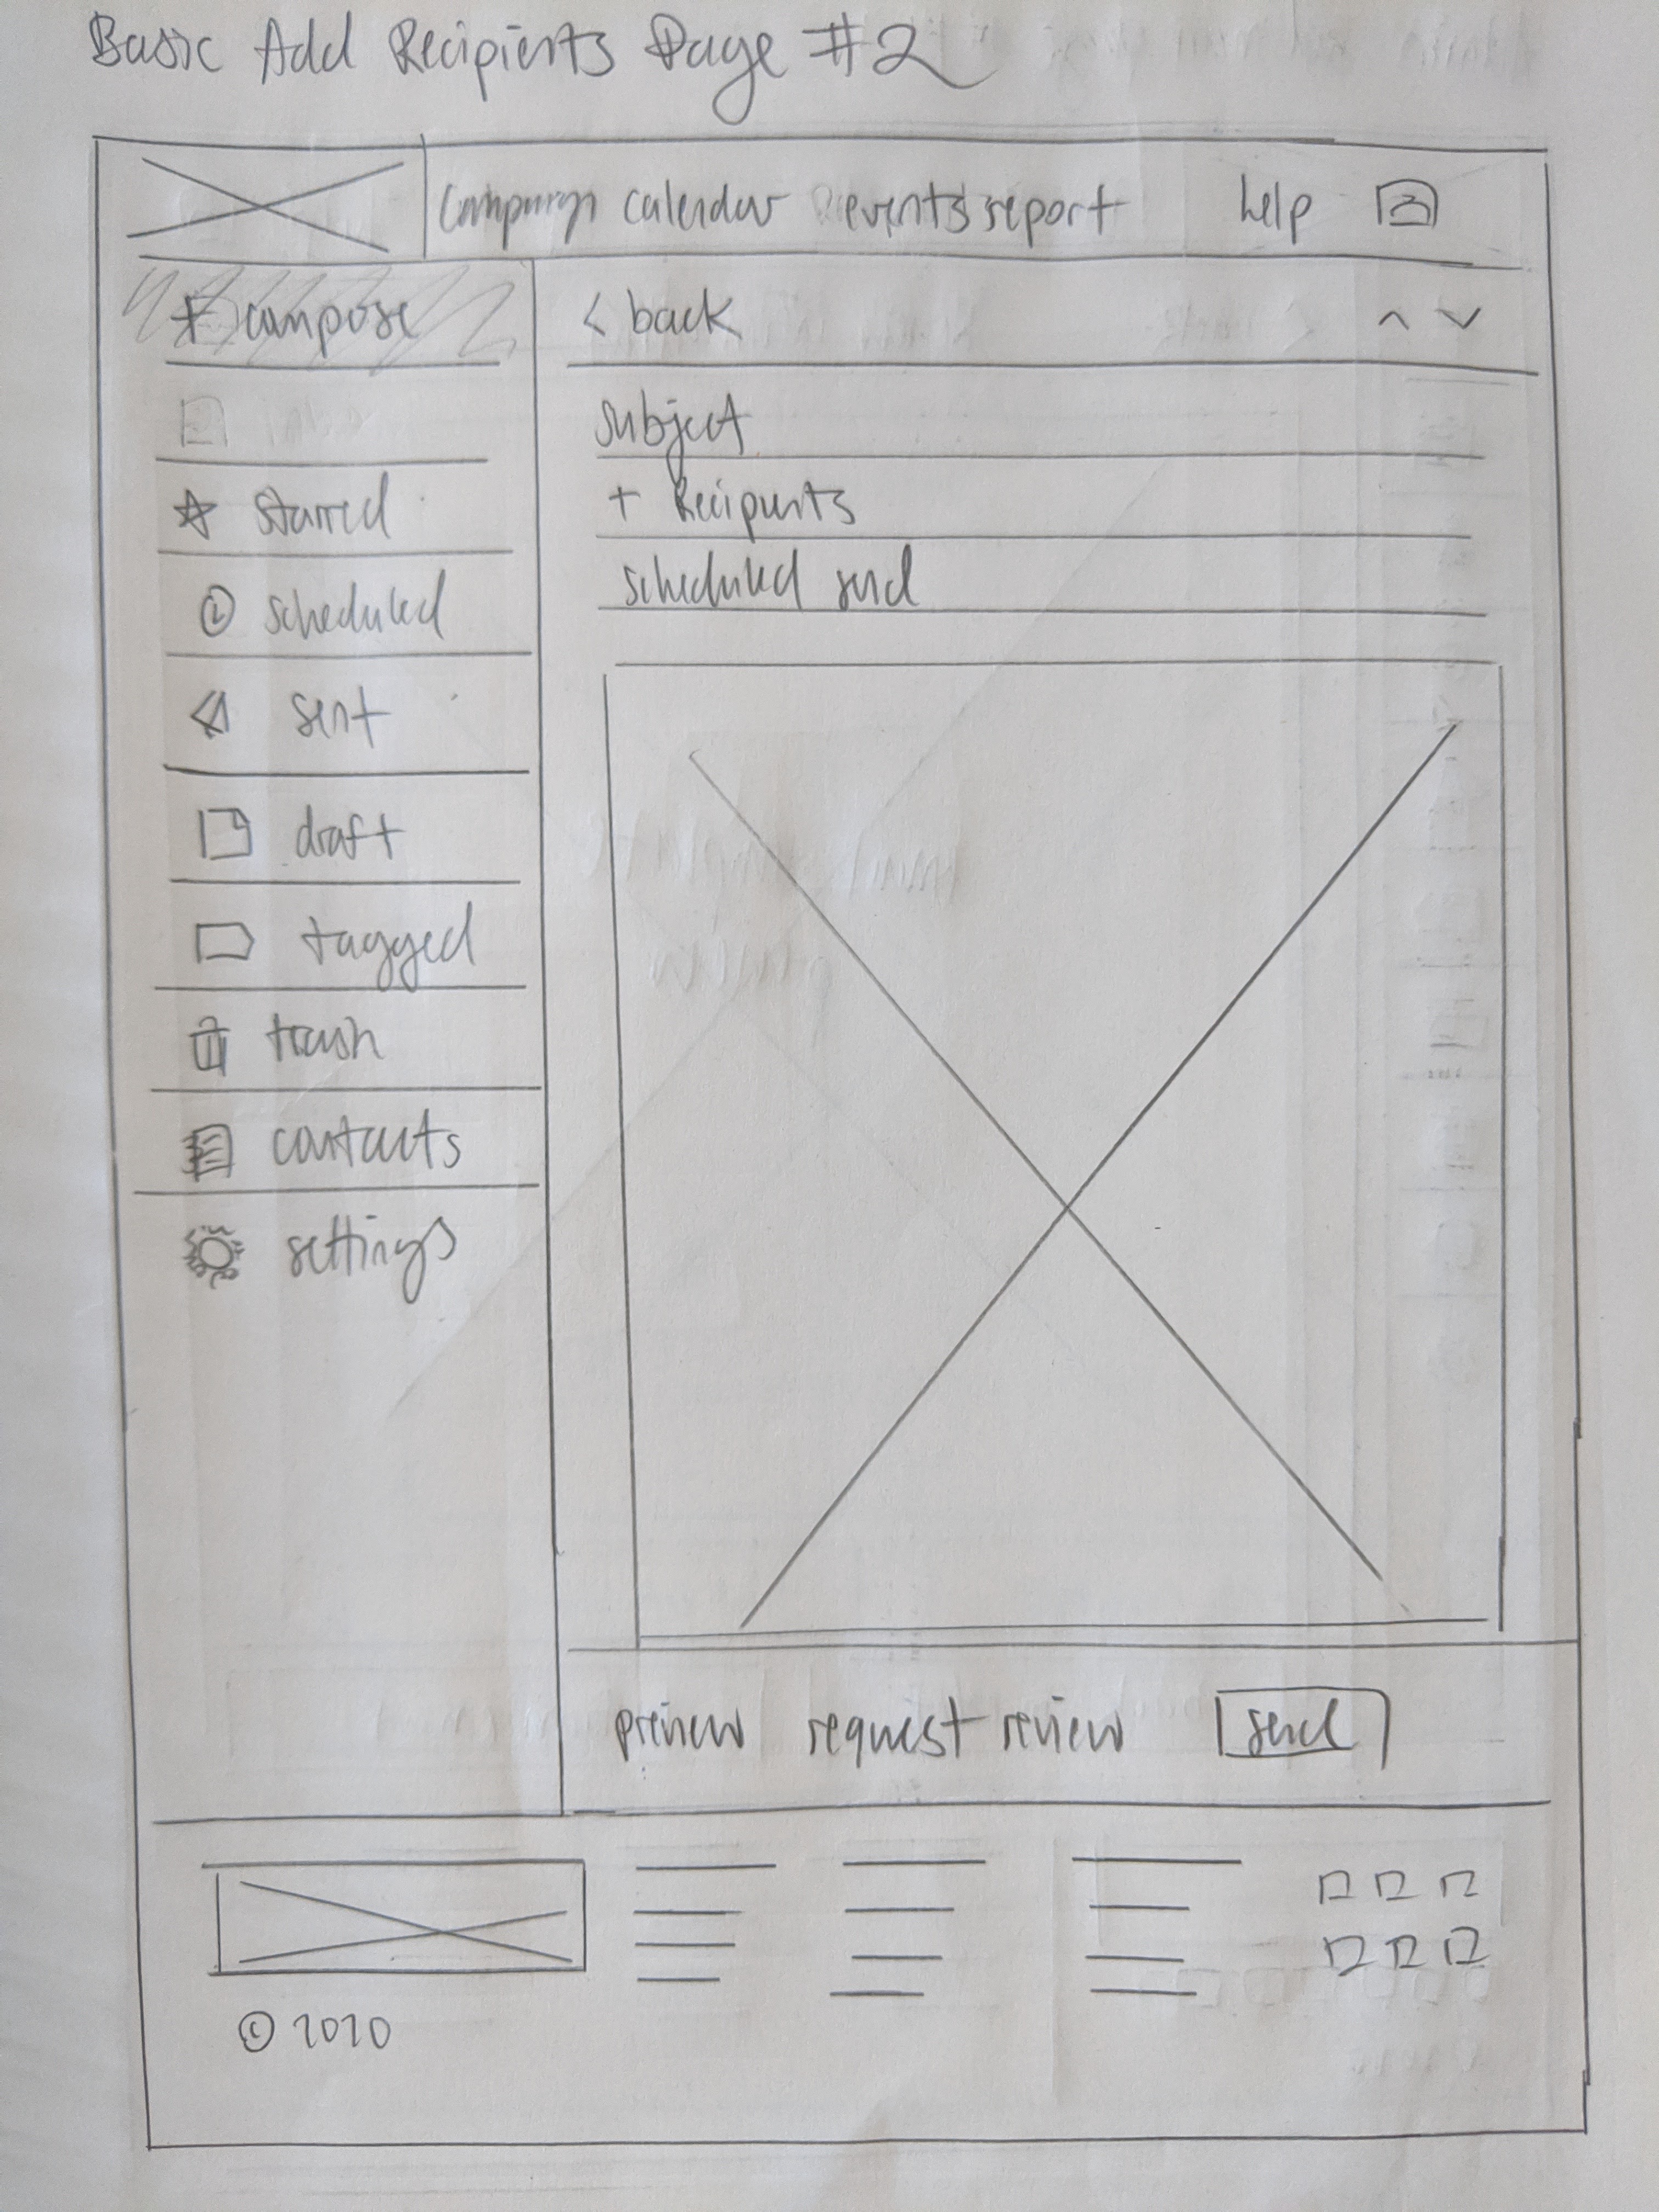 Basic Add Recipients Page #2
campaign calendar events report help
+ compose
< back
starred
scheduled
sent
draft
tagged
trash
contacts
settings
subject
+ Recipients
scheduled send
preview request review send
© 2020